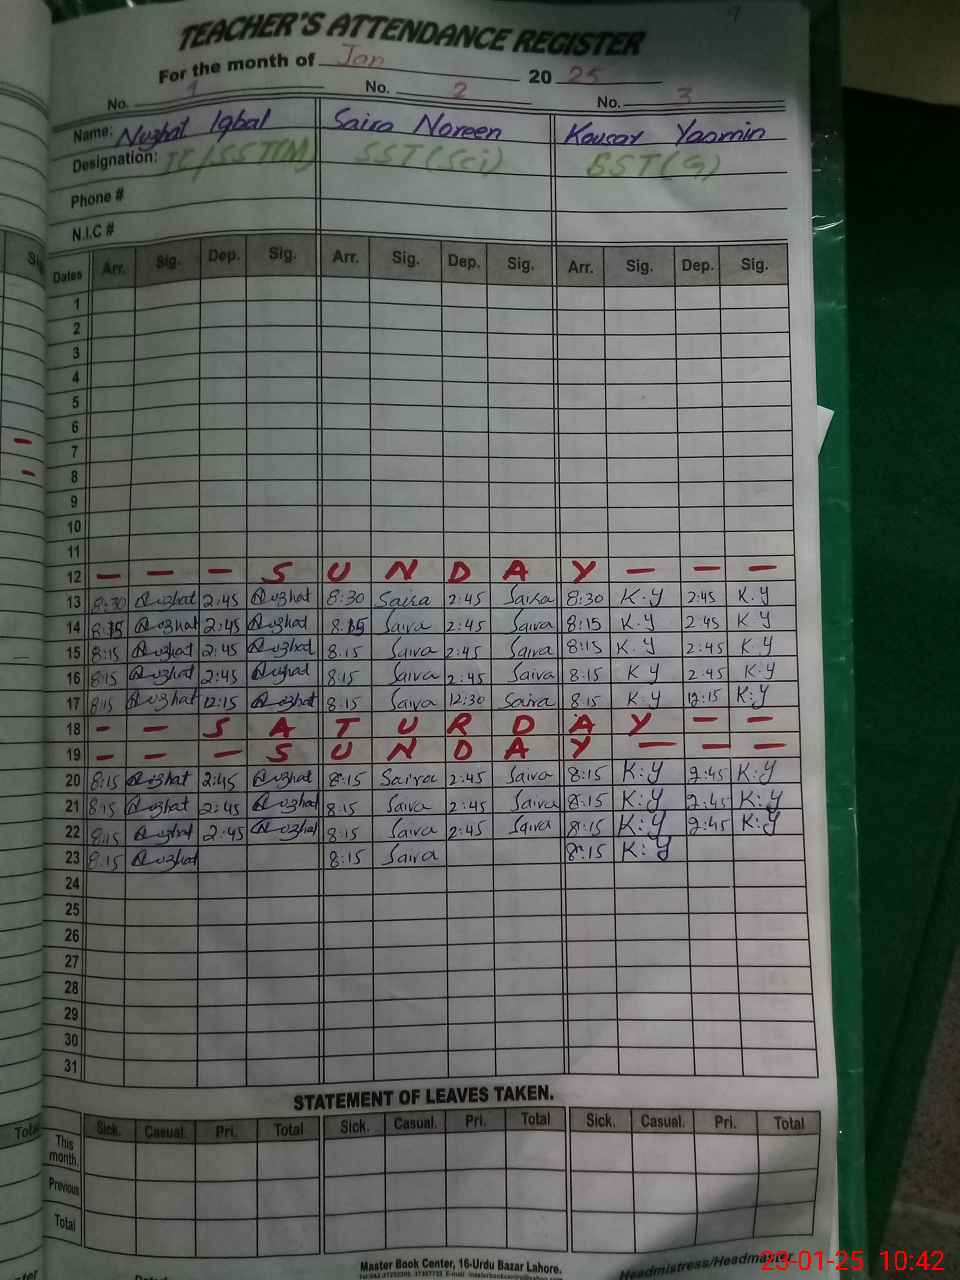 9
TEACHER'S ATTENDANCE REGISTER
For the month of Jan 20 25
No. 1 No. 2 No. 3
Name: Nuzhat Iqbal Saira Noreen Kousar Yasmin
Designation: IC/SST(M) SST(Sci) SST(G)
Phone #
N.I.C #
Sig
Dates Arr. Sig. Dep. Sig. Arr. Sig. Dep. Sig. Arr. Sig. Dep. Sig.
1
2
3
4
5
6
7
8
9
10
11
12 — — — S U N D A Y — — —
13 8:30 Nuzhat 2:45 Nuzhat 8:30 Saira 2:45 Saira 8:30 K.Y 2:45 K.Y
14 8:15 Nuzhat 2:45 Nuzhat 8:15 Saira 2:45 Saira 8:15 K.Y 2:45 K Y
15 8:15 Nuzhat 2:45 Nuzhat 8:15 Saira 2:45 Saira 8:15 K.Y 2:45 K.Y
16 8:15 Nuzhat 2:45 Nuzhat 8:15 Saira 2:45 Saira 8:15 K Y 2:45 K:Y
17 8:15 Nuzhat 12:15 Nuzhat 8:15 Saira 12:30 Saira 8:15 K.Y 12:15 K:Y
18 — — S A T U R D A Y — —
19 — — — S U N D A Y — — —
20 8:15 Nuzhat 2:45 Nuzhat 8:15 Saira 2:45 Saira 8:15 K:Y 2:45 K:Y
21 8:15 Nuzhat 2:45 Nuzhat 8:15 Saira 2:45 Saira 8:15 K:Y 2:45 K:Y
22 8:15 Nuzhat 2:45 Nuzhat 8:15 Saira 2:45 Saira 8:15 K:Y 2:45 K:Y
23 8:15 Nuzhat 8:15 Saira 8:15 K:Y
24
25
26
27
28
29
30
31
STATEMENT OF LEAVES TAKEN.
Total Sick. Casual. Pri. Total Sick. Casual. Pri. Total Sick. Casual. Pri. Total
This month.
Previous
Total
Master Book Center, 16-Urdu Bazar Lahore.
Headmistress/Headmaster
23-01-25 10:42